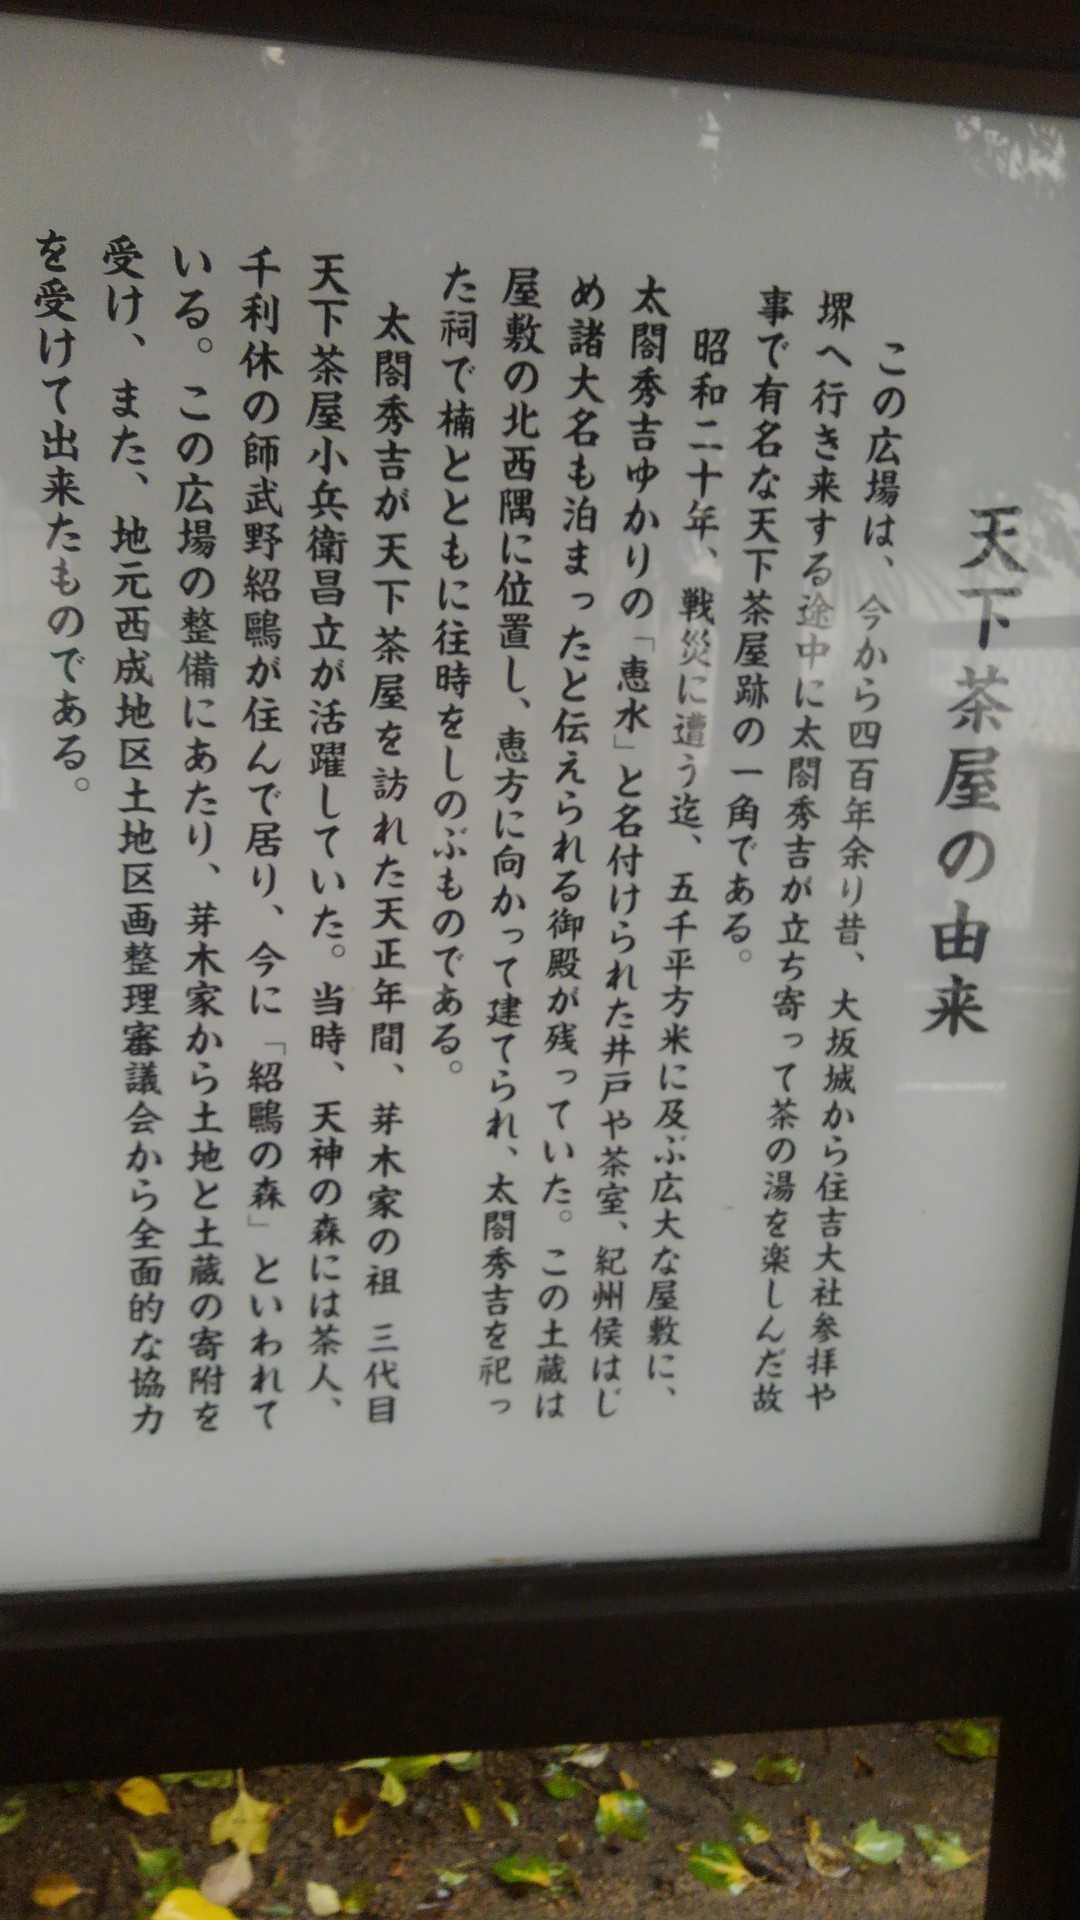 天下茶屋の由来
この広場は、今から四百年余り昔、大坂城から住吉大社参拝や
堺へ行き来する途中に太閤秀吉が立ち寄って茶の湯を楽しんだ故
事で有名な天下茶屋跡の一角である。
昭和二十年、戦災に遭う迄、五千平方米に及ぶ広大な屋敷に、
太閤秀吉ゆかりの「恵水」と名付けられた井戸や茶室、紀州侯はじ
め諸大名も泊まったと伝えられる御殿が残っていた。この土蔵は
屋敷の北西隅に位置し、恵方に向かって建てられ、太閤秀吉を祀っ
た祠で楠とともに往時をしのぶものである。
太閤秀吉が天下茶屋を訪れた天正年間、芽木家の祖 三代目
天下茶屋小兵衛昌立が活躍していた。当時、天神の森には茶人、
千利休の師武野紹鷗が住んで居り、今に「紹鷗の森」といわれて
いる。この広場の整備にあたり、芽木家から土地と土蔵の寄附を
受け、また、地元西成地区土地区画整理審議会から全面的な協力
を受けて出来たものである。